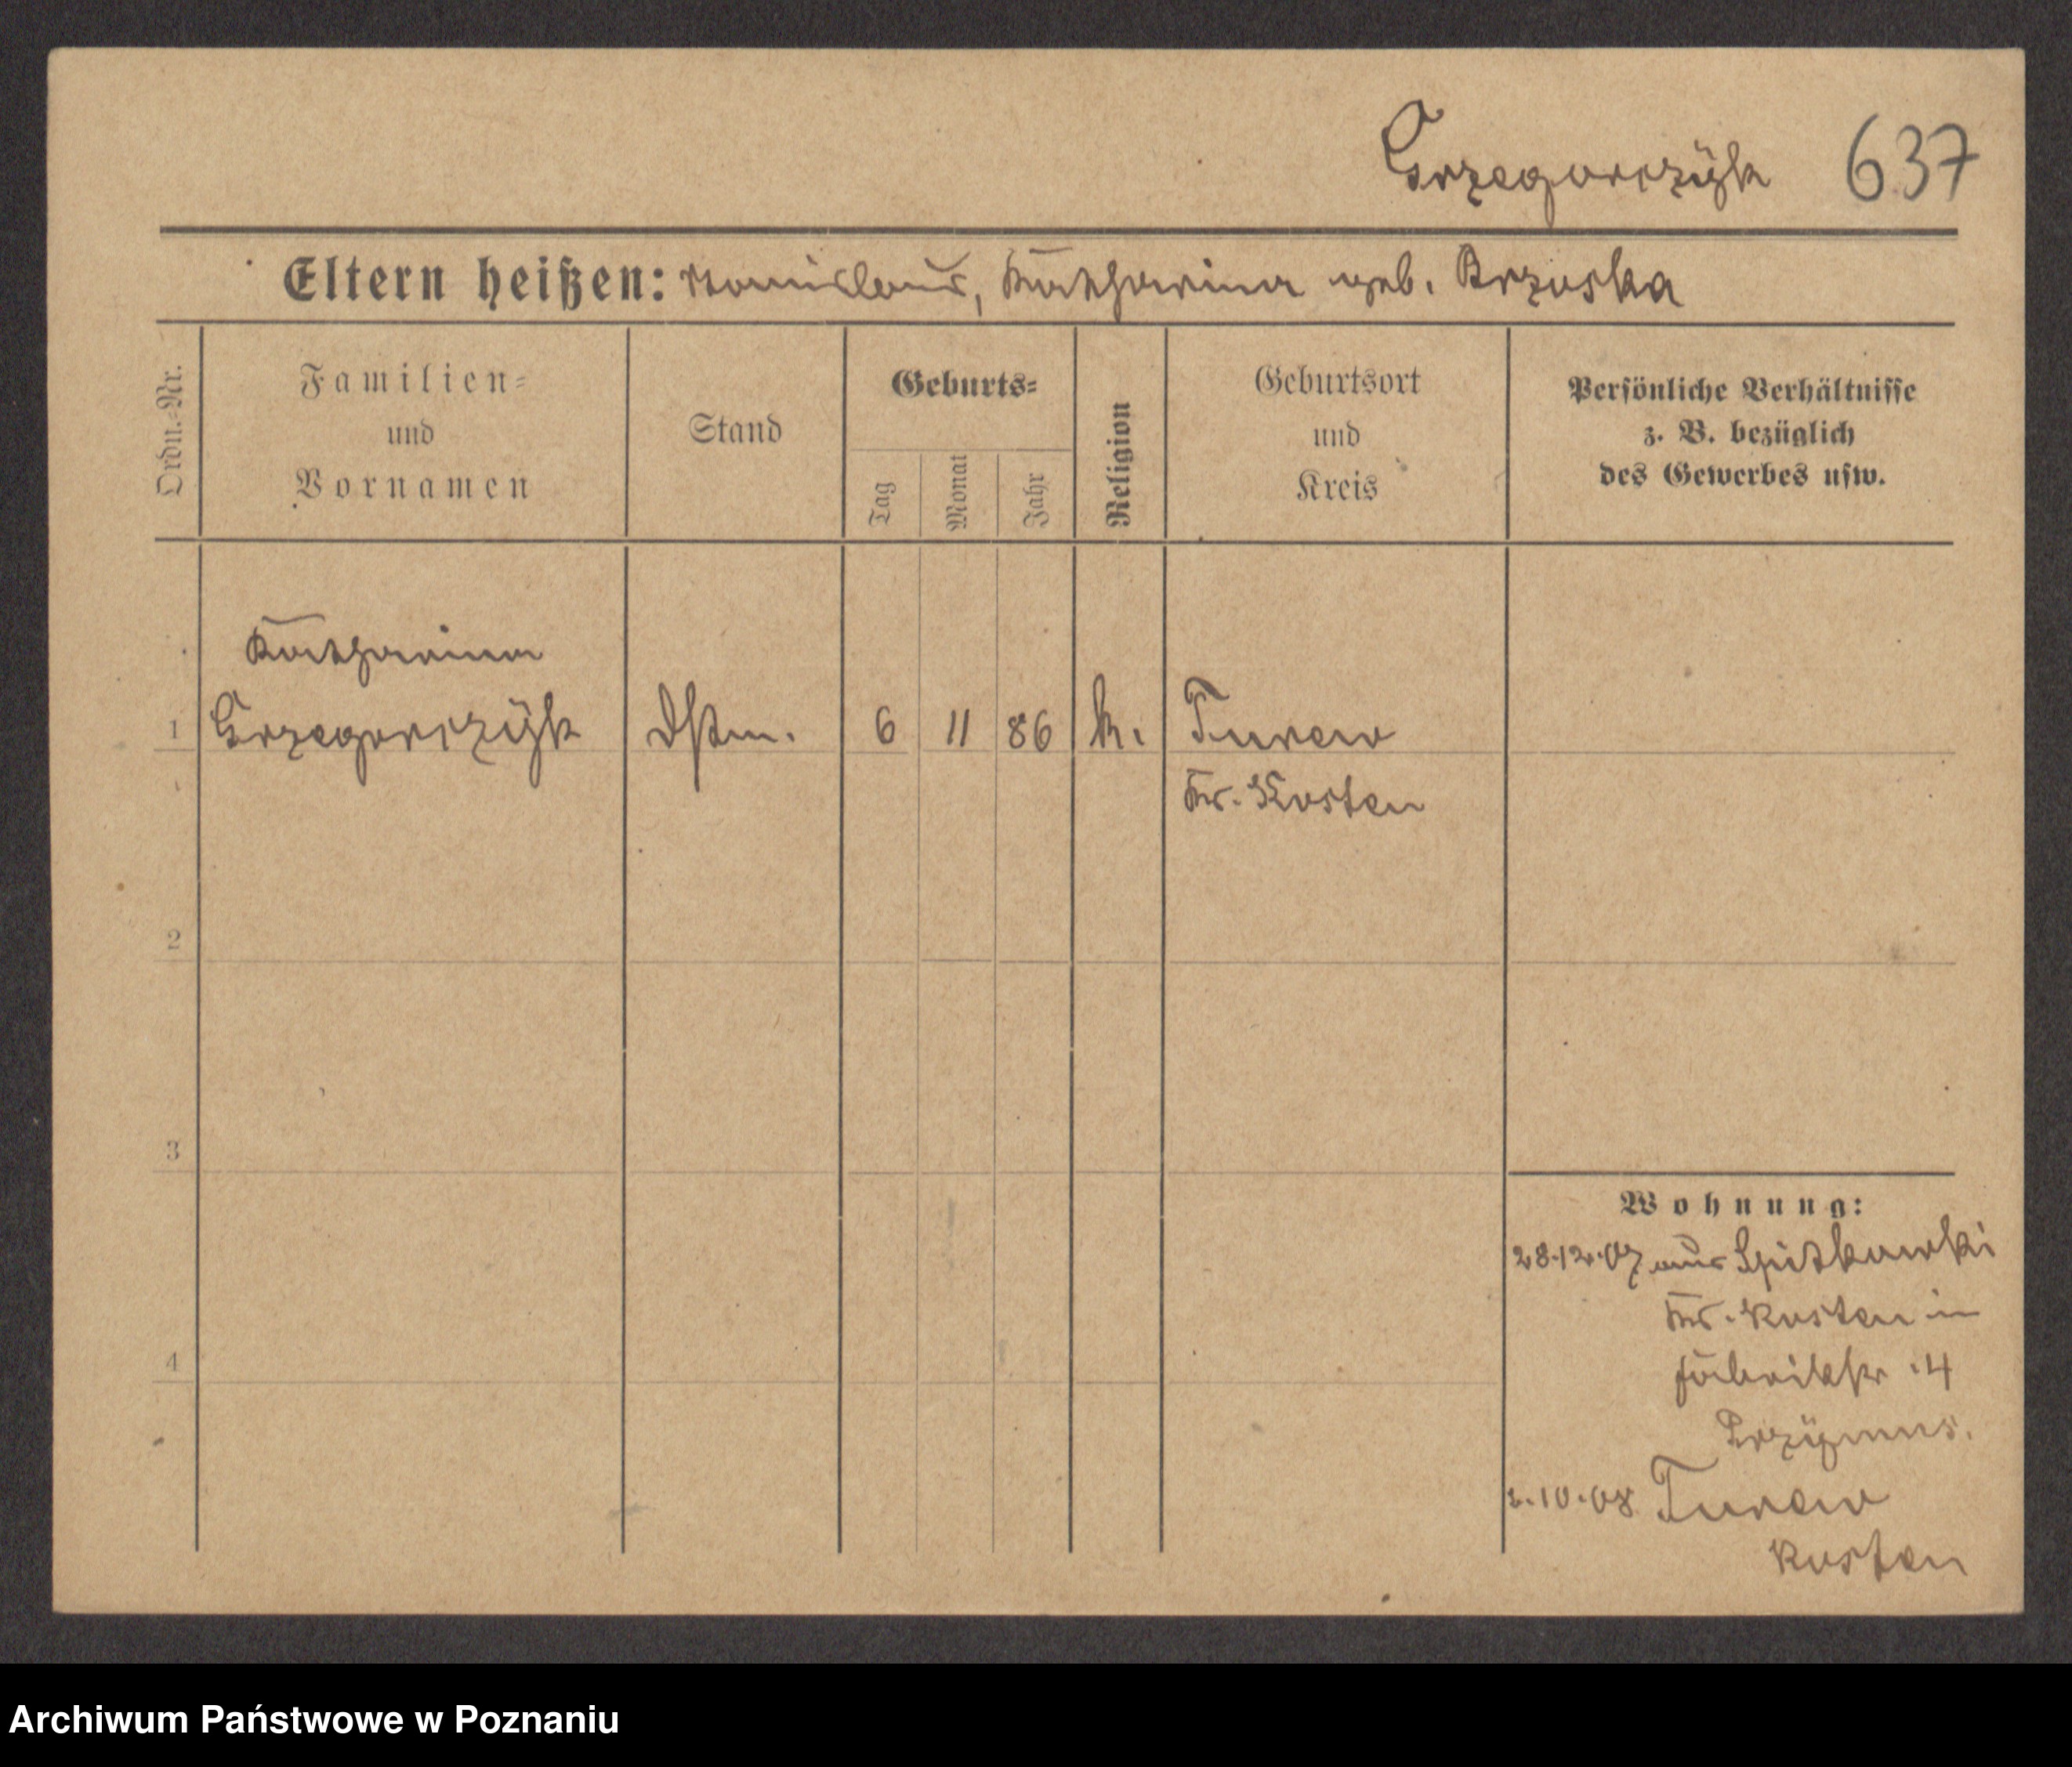 Grzegorczÿk 637
Eltern heißen: Stanislaus, Katharina geb. Brzoska
Ordn.-Nr.
Familien-
und
Vornamen
Stand
Geburts-
Tag
Monat
Jahr
Religion
Geburtsort
und
Kreis
Persönliche Verhältnisse
z. B. bezüglich
des Gewerbes usw.
Katharina
1 Grzegorczÿk Dstm. 6 11 86 k. Turew
Kr. Kosten
2
3
4
Wohnung:
28.12.07 aus Spitkowki
Kr. Kosten in
Fabrikstr. 4
Przÿmus.
2.10.08 Turew
Kosten
Archiwum Państwowe w Poznaniu